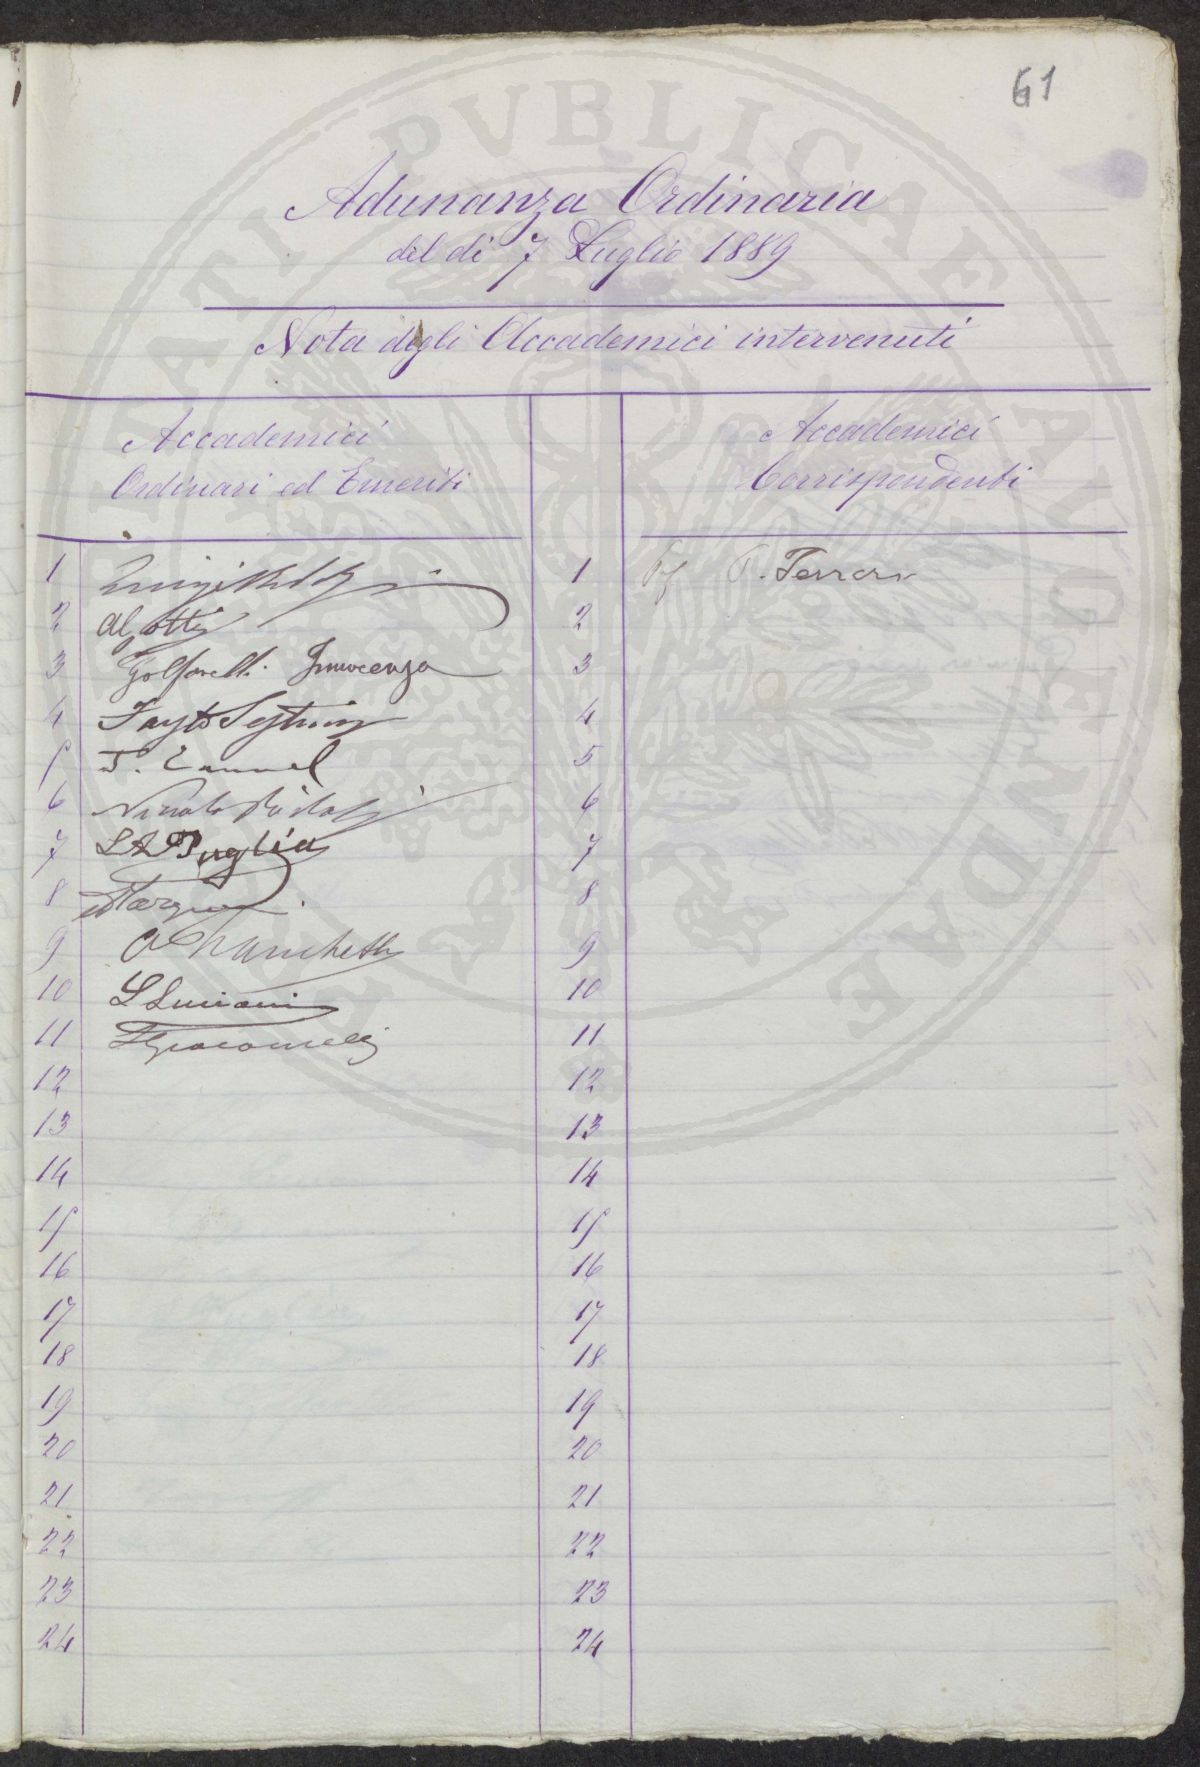 61
Adunanza Ordinaria
del dì 7 Luglio 1889
Nota degli Accademici intervenuti
Accademici
Ordinari ed Emeriti
Accademici
Corrispondenti
1
1 P. Ferrari
2
2
3 Golfarelli Innocenzo
3
4 Fausto Sestini
4
5
5
6 Niccolò Ridolfi
6
7 Puglia
7
8
8
9 Banchetti
9
10 L Luciani
10
11 Giacomelli
11
12
12
13
13
14
14
15
15
16
16
17
17
18
18
19
19
20
20
21
21
22
22
23
23
24
24
PUBLICAE